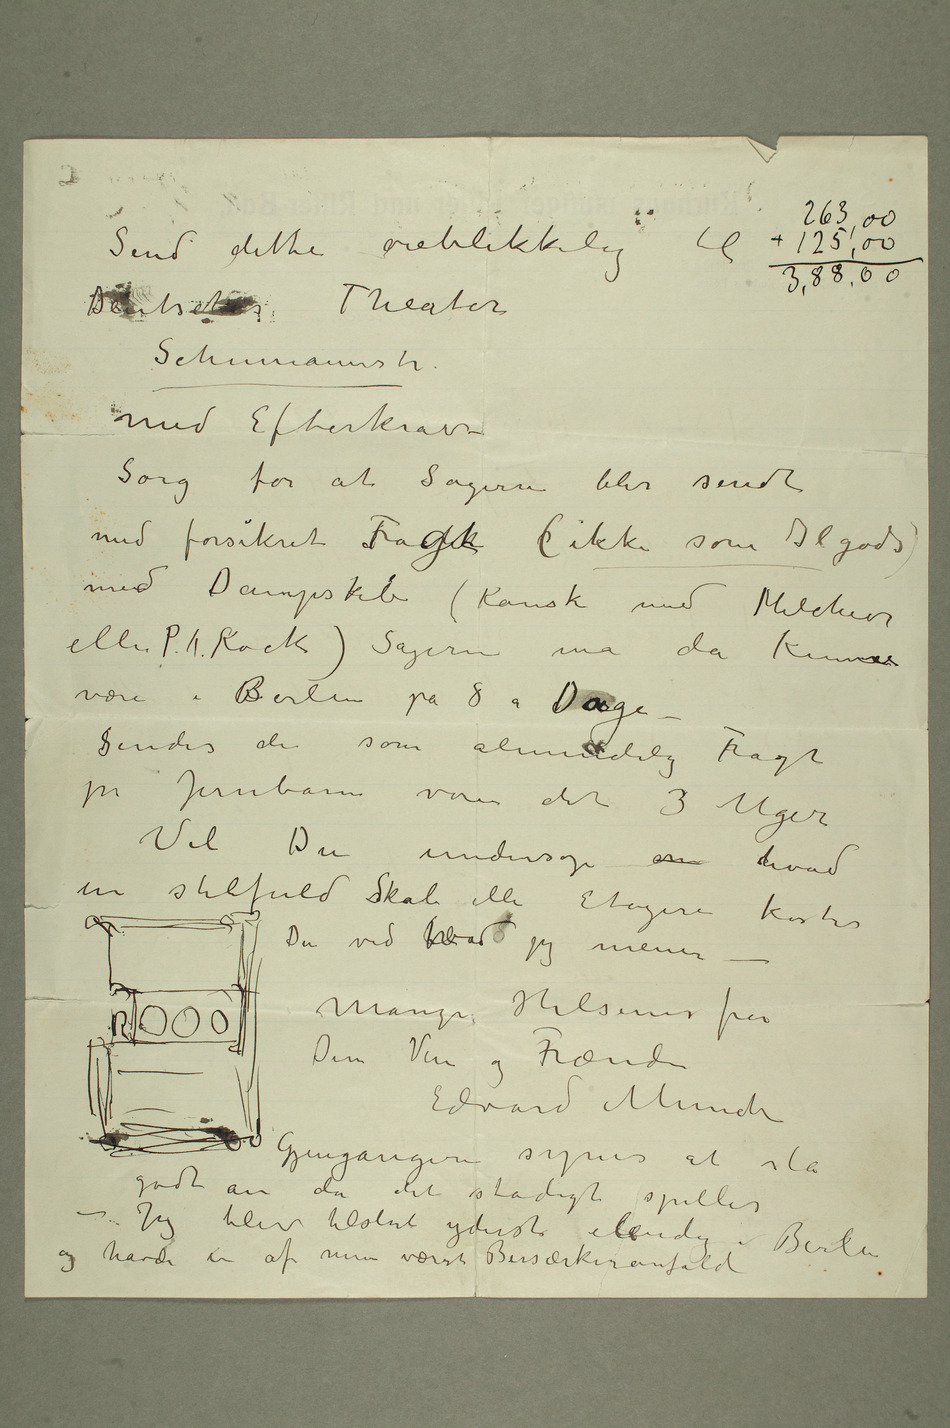 263,00
+ 125,00
3,88,00
Send dette øieblikkelig til
Deutsches Theater
Schumannstr.
med Efterkrav
Sørg for at Sagerne blir sendt
med forsikret Fragt (ikke som Ilgods)
med Dampskib (kanske med Melchior
eller P.A. Rock) Sagerne må da kunne
være i Berlin på 8 a Dage –
Sendes de som almindelig Fragt
pr Jernbane varer det 3 Uger
Vil Du undersøge om hvad
en stilfuld Skab eller Etagere koster
Du ved hvad jeg mener –
Mange Hilsener fra
Din Ven og Frænde
Edvard Munch
Gjengangere synes at slå
godt an da det stadigt spilles
– Jeg blev tilslut yderst elendig i Berlin
og havde en af mine værste Bersærkeranfald